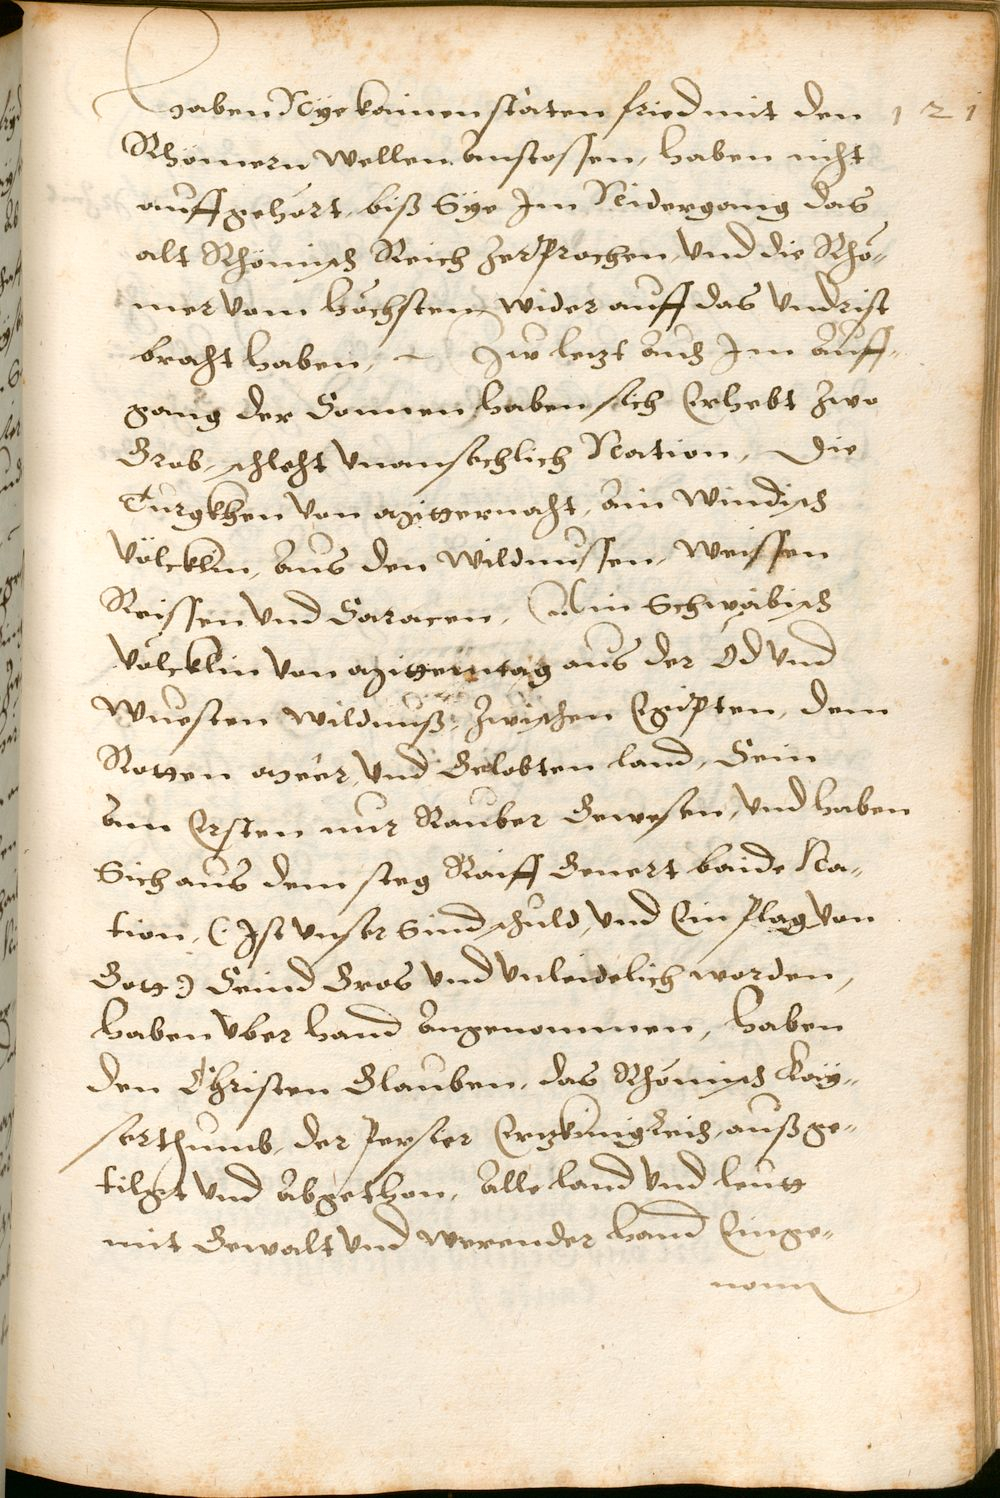 haben Nye kainen stäten fried mit den 121
Rhömern wellen anstossen, haben nicht
auffgehört, biß Sye Im Nidergang das
alt Rhömisch Reich zersprochen, vnd die Rhö-
mer vom höchsten wider auff das vndrist
bracht haben, ~ Zw letzt auch Im auff-
gang der Sonnen haben sich Erhebt zwo
Grob, schlecht vnansechlich Nation, Die
Turgkhen von mitternacht, ain windisch
völcklin, aus den wildnussen, weissen
Reissen vnd Saracen, Ain Schwäbisch
völcklin von mittemtag aus der Öd vnd
wuesten wildnuß, zwischen Egipten, dem
Rotten meer, vnd Gelobten land, Sein
am Ersten nur Rauber Gewesen, vnd haben
Sich aus dem steg Raiff Genert baide Na-
tion, (Ist vnser Sind schuld, vnd Ein plag von
Gott) Seind Gros vnd vnleidelich worden,
haben vber hand angenommen, haben
den Christen Glauben, das Rhömisch Kay-
serthumb, der Persier Ertzkinigkreich, außge-
tilget vnd abgethon, alle land vnd leutt
mit Gewalt vnd werender hand Einge-
nom